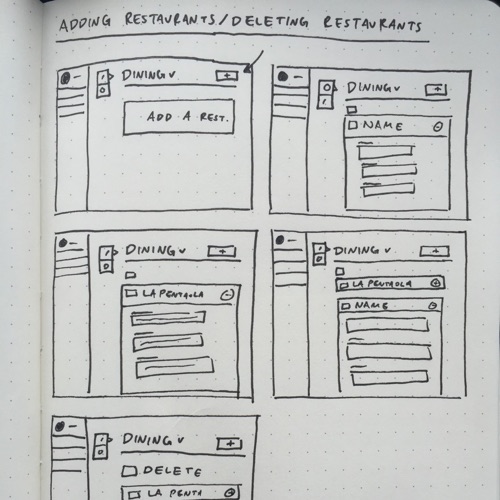 ADDING RESTAURANTS/DELETING RESTAURANTS
DINING
+
ADD A REST.
DINING
+
NAME
DINING
+
LA PENTOLA
DINING
+
LA PENTOLA
NAME
DINING
+
DELETE
LA PENTO